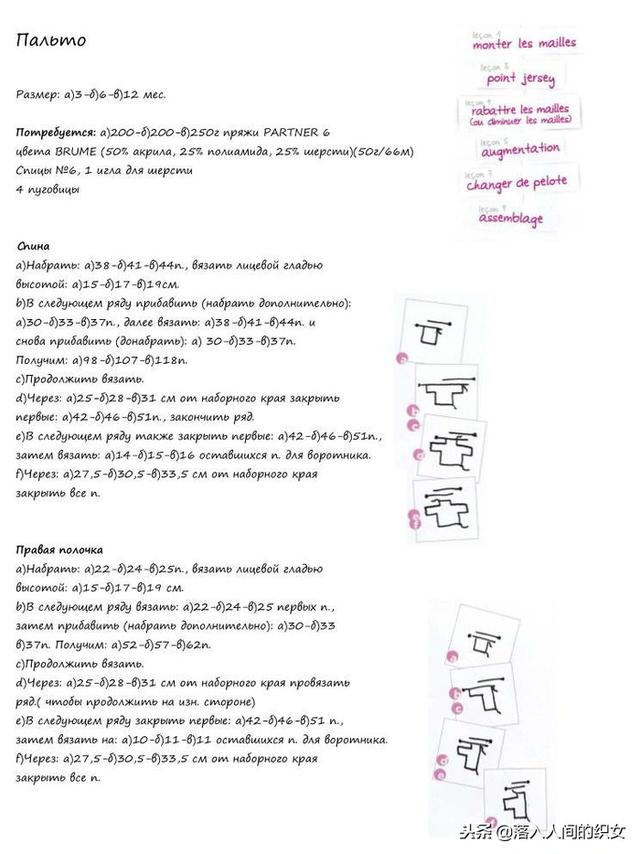 Пальто
Размер: а)3-б)6-в)12 мес.
Потребуется: а)200-б)200-в)250г пряжи PARTNER 6
цвета BRUME (50% акрила, 25% полиамида, 25% шерсти)(50г/66м)
Спицы №6, 1 игла для шерсти
4 пуговицы
leçon 1
monter les mailles
leçon 3
point jersey
rabattre les mailles
(ou diminuer les mailles)
leçon 5
augmentation
leçon 7
changer de pelote
leçon 9
assemblage
Спина
a)Набрать: а)38-б)41-в)44п., вязать лицевой гладью
высотой: а)15-б)17-в)19см.
b)В следующем ряду прибавить (набрать дополнительно):
а)30-б)33-в)37п., далее вязать: а)38-б)41-в)44п. и
снова прибавить (донабрать): а) 30-б)33-в)37п.
Получим: а)98-б)107-в)118п.
c)Продолжить вязать.
d)Через: а)25-б)28-в)31 см от наборного края закрыть
первые: а)42-б)46-в)51п., закончить ряд.
e)В следующем ряду также закрыть первые: а)42-б)46-в)51п.,
затем вязать: а)14-б)15-в)16 оставшихся п. для воротника.
f)Через: а)27,5-б)30,5-в)33,5 см от наборного края
закрыть все п.
a
b
c
d
Правая полочка
a)Набрать: а)22-б)24-в)25п., вязать лицевой гладью
высотой: а)15-б)17-в)19 см.
b)В следующем ряду вязать: а)22-б)24-в)25 первых п.,
затем прибавить (набрать дополнительно): а)30-б)33
в)37п. Получим: а)52-б)57-в)62п.
c)Продолжить вязать.
d)Через: а)25-б)28-в)31 см от наборного края провязать
ряд.( чтобы продолжить на изн. стороне)
e)В следующем ряду закрыть первые: а)42-б)46-в)51 п.,
затем вязать на: а)10-б)11-в)11 оставшихся п. для воротника.
f)Через: а)27,5-б)30,5-в)33,5 см от наборного края
закрыть все п.
a
b
c
d
e
f
头条 @落入人间的织女